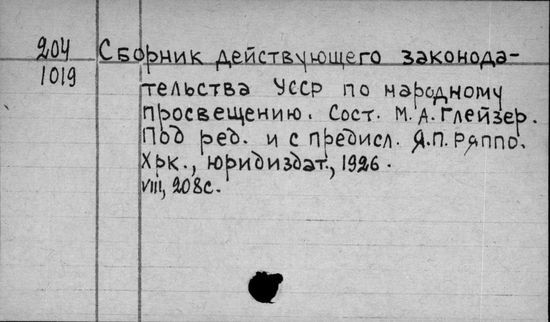 204
1019
Сборник действующего законода-
тельства УССР по народному
просвещению. Сост. М.А. Глейзер.
Под ред. и с предисл. Я.П. Ряппо.
Хрк., юридиздат, 1926.
VIII, 208с.